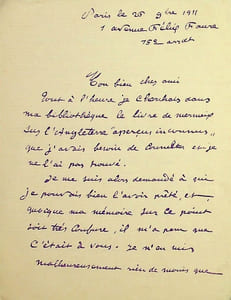 Paris le 26 9bre 1911
1 avenue Félix Faure
15e arrdt
Mon bien cher ami
Tout à l'heure je cherchais dans
ma bibliothèque le livre de
sur l'Angleterre "aperçus inconnus",
que j'avais besoin de consulter et je
ne l'ai pas trouvé.
Je me suis alors demandé à qui
je pouvais bien l'avoir prêté, et,
quoique ma mémoire sur ce point
soit très confuse, il m'a paru que
c'était à vous. Je n'en suis
malheureusement rien de moins que